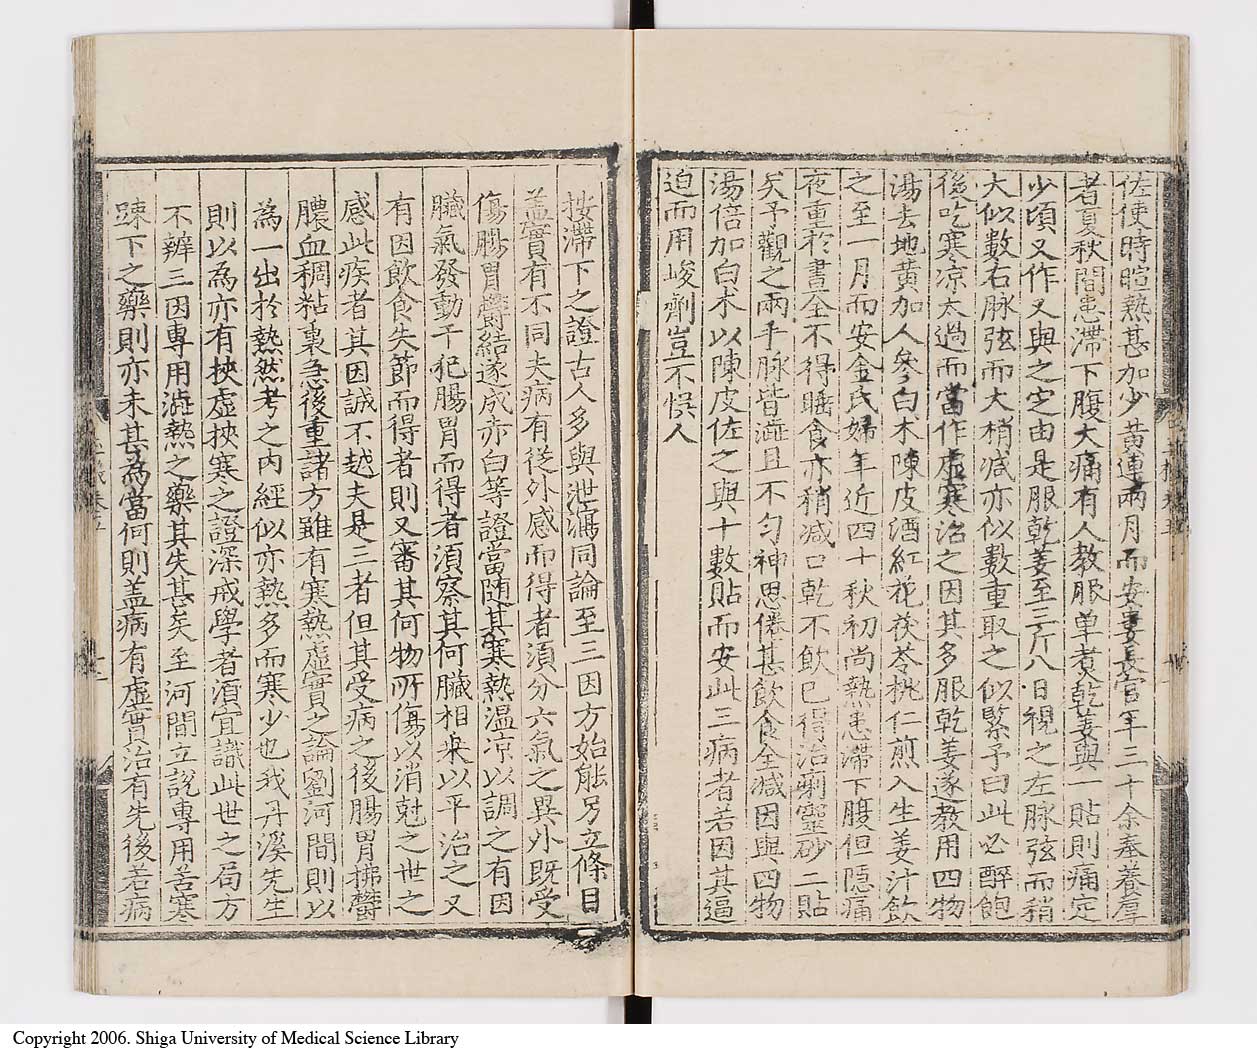 佐使時暄熱甚加少黄連兩月而安婁長官年三十余奉養厚
者夏秋間患滯下腹大痛有人教服单煮乾姜與一貼則痛定
少頃又作又與之定由是服乾姜至三斤八日視之左脉弦而稍
大似数右脉弦而大稍减亦似数重取之似緊予曰此必醉飽
後吃寒凉太過而當作虚寒治之因其多服乾姜遂教用四物
湯去地黄加人參白木陳皮酒紅花茯苓桃仁煎入生姜汁飲
之至一月而安金氏婦年近四十秋初尚熱患滯下腹但隠痛
夜重於晝全不得睡食亦稍减口乾不飲巳得治痢靈砂二貼
矣予觀之兩手脉皆澁且不匀神思倦甚飲食全减因與四物
湯倍加白术以陳皮佐之與十數貼而安此三病者若因其逼
迫而用峻劑豈不悮人
按滯下之證古人多與泄瀉同論至三因方始能另立條目
盖實有不同夫病有從外感而得者須分六氣之異外既受
傷腸胃欝結遂成赤白等證當随其寒熱温凉以調之有因
臟氣發動干犯腸胃而得者須察其何臟相乘以平治之又
有因飲食失節而得者則又審其何物所傷以消尅之世之
感此疾者其因誠不越夫是三者但其受病之後腸胃拂欝
膿血稠粘裏急後重諸方雖有寒熱虚實之論劉河間則以
為一出於熱然考之内經似亦熱多而寒少也我丹溪先生
則以為亦有挾虚挾寒之證深戒學者湏宜識此世之局方
不辨三因專用澁熱之藥其失甚矣至河間立說專用苦寒
踈下之藥則亦未甚為當何則盖病有虚實治有先後若病
Copyright 2006. Shiga University of Medical Science Library